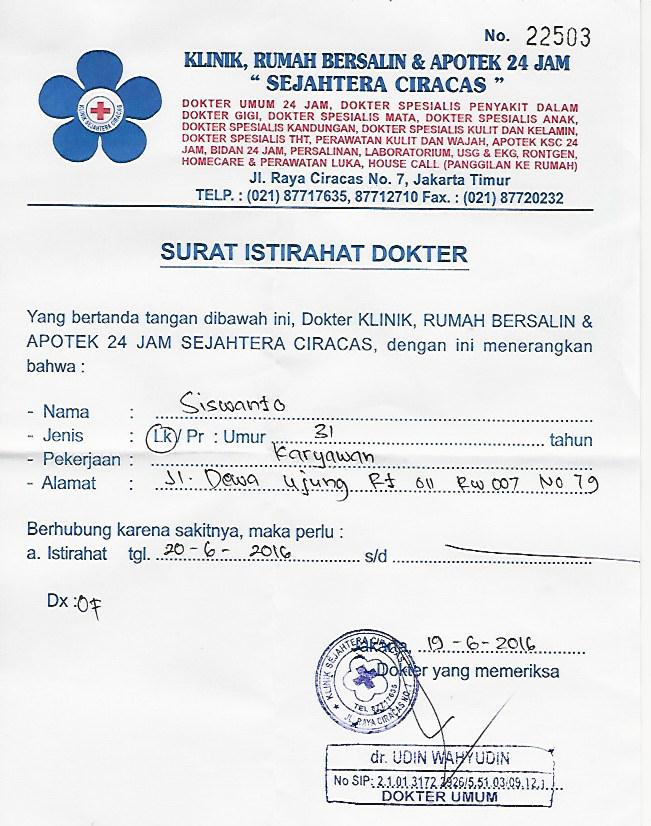 No. 22503
KLINIK, RUMAH BERSALIN & APOTEK 24 JAM
“ SEJAHTERA CIRACAS ”
DOKTER UMUM 24 JAM, DOKTER SPESIALIS PENYAKIT DALAM
DOKTER GIGI, DOKTER SPESIALIS MATA, DOKTER SPESIALIS ANAK,
DOKTER SPESIALIS KANDUNGAN, DOKTER SPESIALIS KULIT DAN KELAMIN,
DOKTER SPESIALIS THT, PERAWATAN KULIT DAN WAJAH, APOTEK KSC 24
JAM, BIDAN 24 JAM, PERSALINAN, LABORATORIUM, USG & EKG, RONTGEN,
HOMECARE & PERAWATAN LUKA, HOUSE CALL (PANGGILAN KE RUMAH)
Jl. Raya Ciracas No. 7, Jakarta Timur
TELP. : (021) 87717635, 87712710 Fax. : (021) 87720232
KLINIK SEJAHTERA CIRACAS
SURAT ISTIRAHAT DOKTER
Yang bertanda tangan dibawah ini, Dokter KLINIK, RUMAH BERSALIN &
APOTEK 24 JAM SEJAHTERA CIRACAS, dengan ini menerangkan
bahwa :
- Nama : Siswanto
- Jenis : Lk / Pr : Umur 31 tahun
- Pekerjaan : Karyawan
- Alamat : Jl. Dewa Ujung Rt 011 Rw 007 No 79
Berhubung karena sakitnya, maka perlu :
a. Istirahat tgl. 20 - 6 - 2016 s/d
Dx : OF
Jakarta, 19 - 6 - 2016
Dokter yang memeriksa
KLINIK SEJAHTERA CIRACAS
TEL 87717635
JL. RAYA CIRACAS NO. 7
dr. UDIN WAHYUDIN
No SIP: 2.1.01.3172
DOKTER UMUM